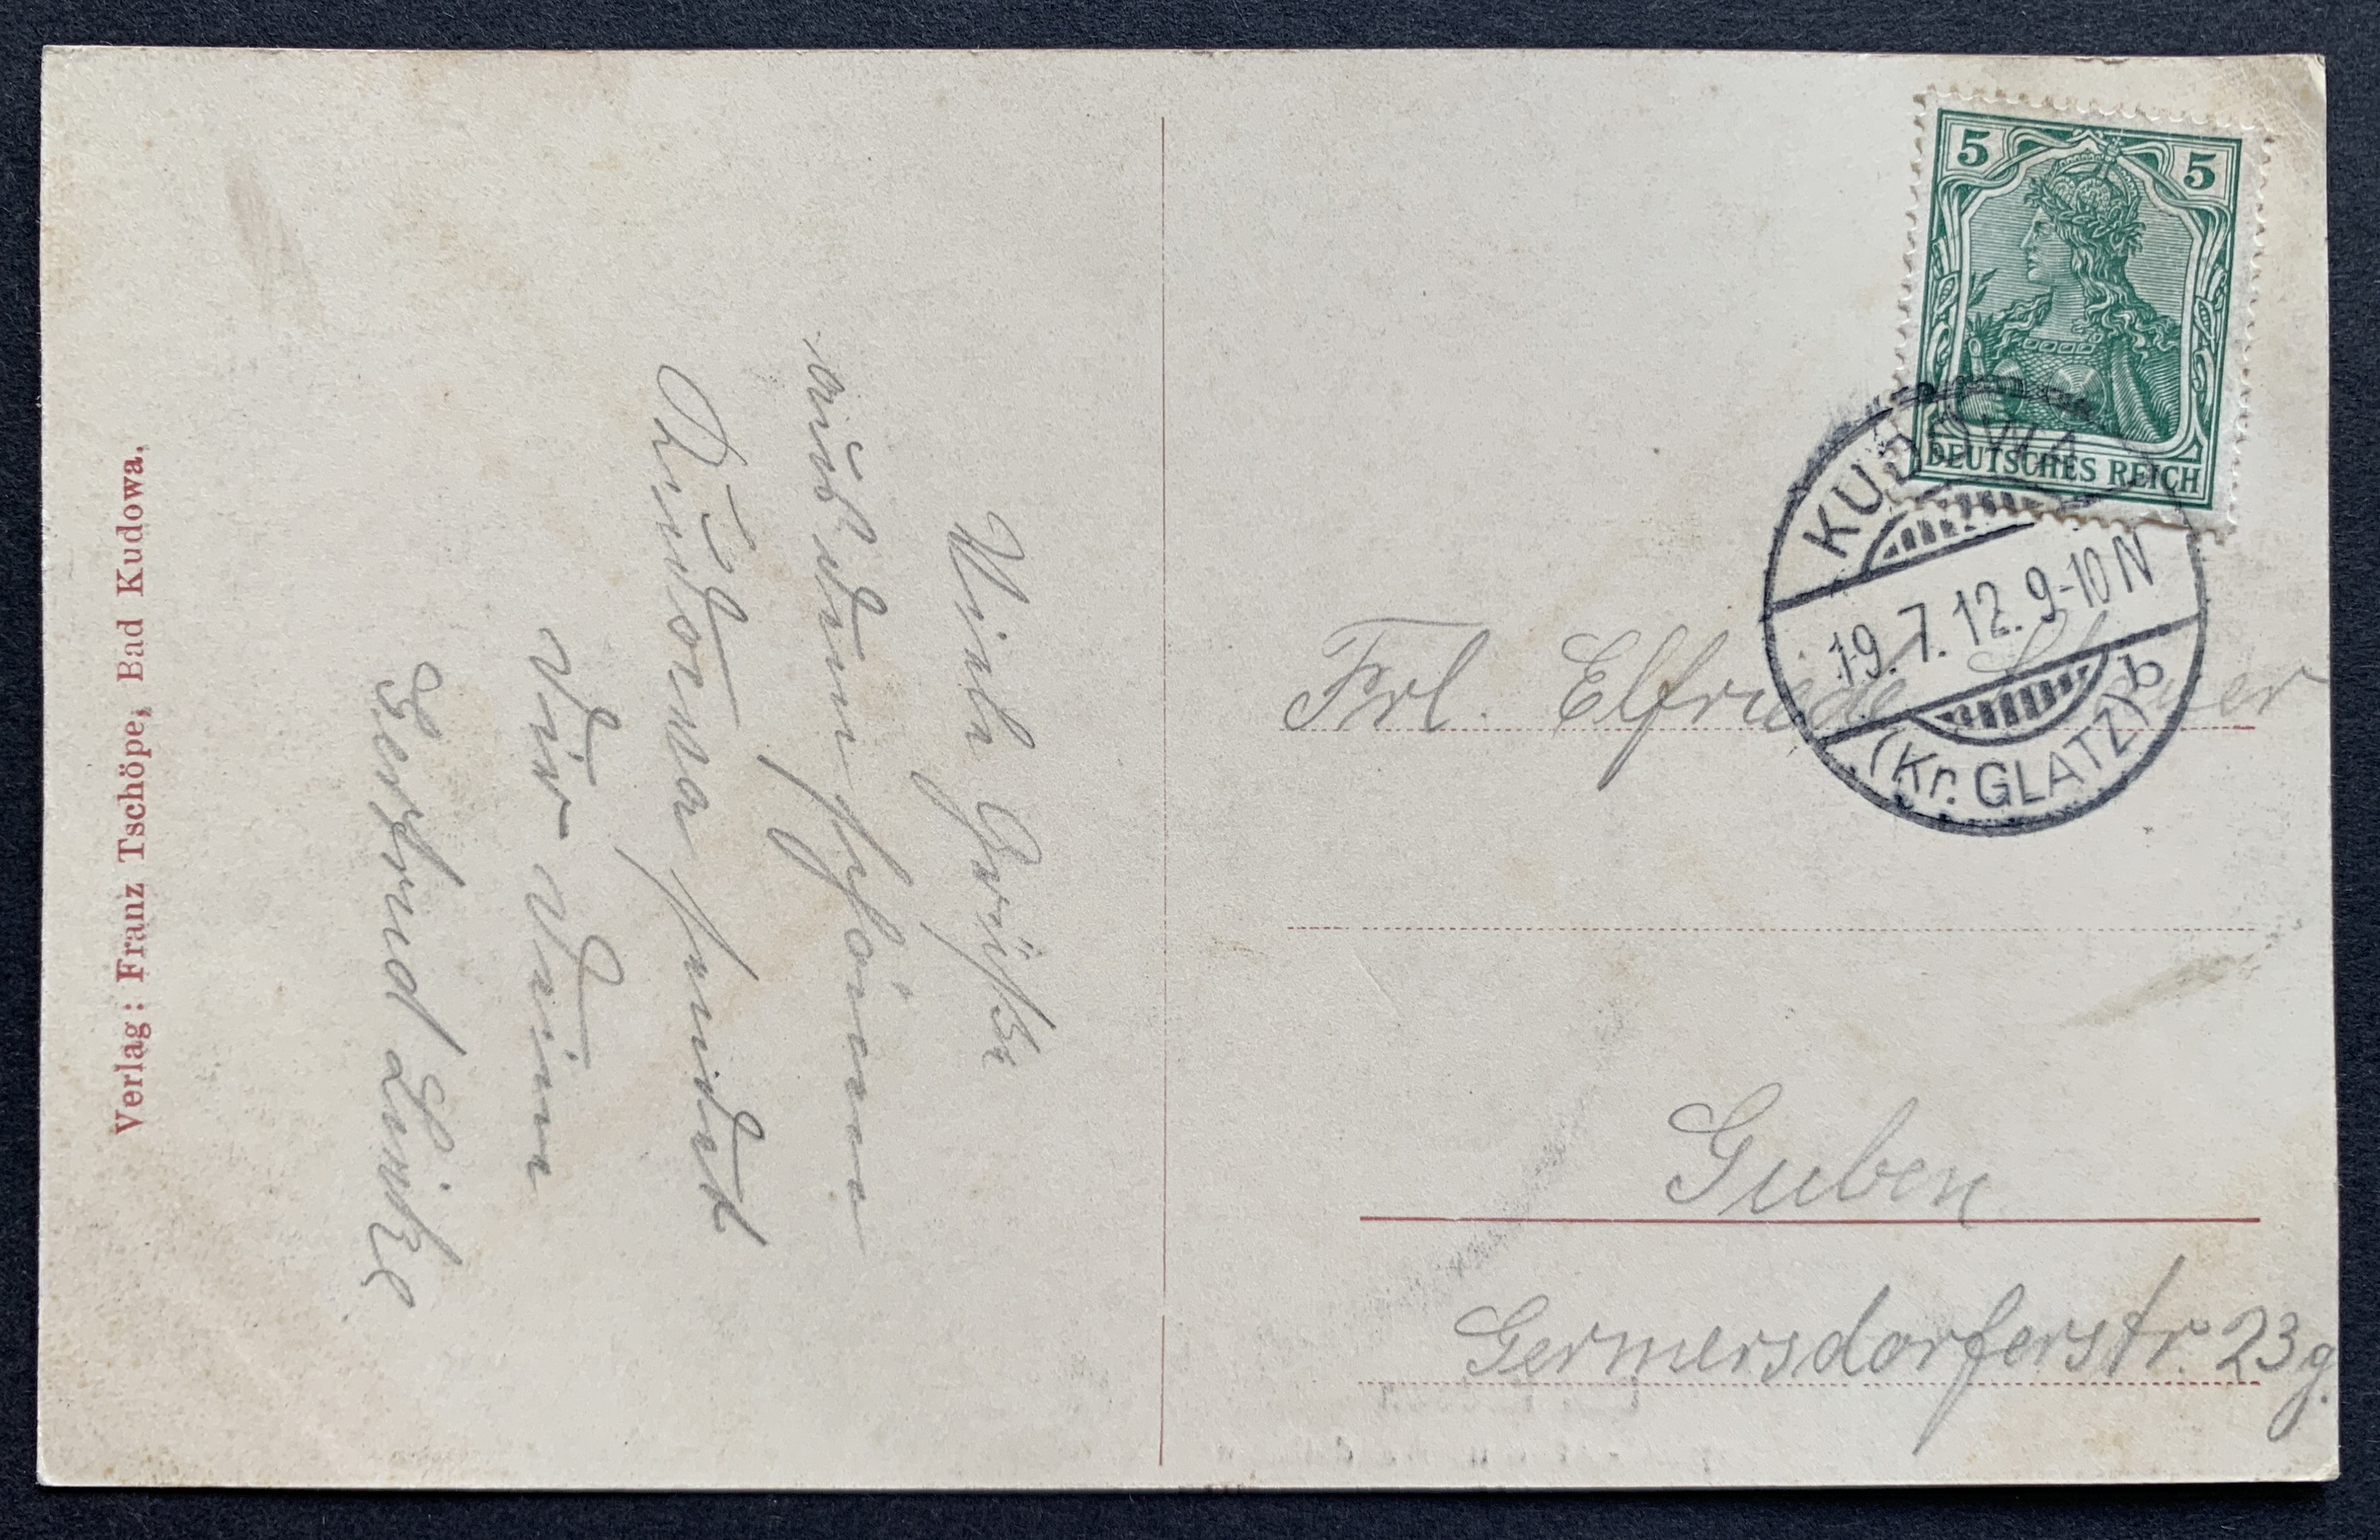 Verlag: Franz Tschöpe, Bad Kudowa.
Viele Grüße
aus dem schönen
Kudowa sendet
Dir Deine
Gertrud Linke
5 5
DEUTSCHES REICH
KUDOWA
19.7.12.9-10N
(Kr. GLATZ) b
Frl. Elfriede
Guben
Germersdorferstr. 23g.